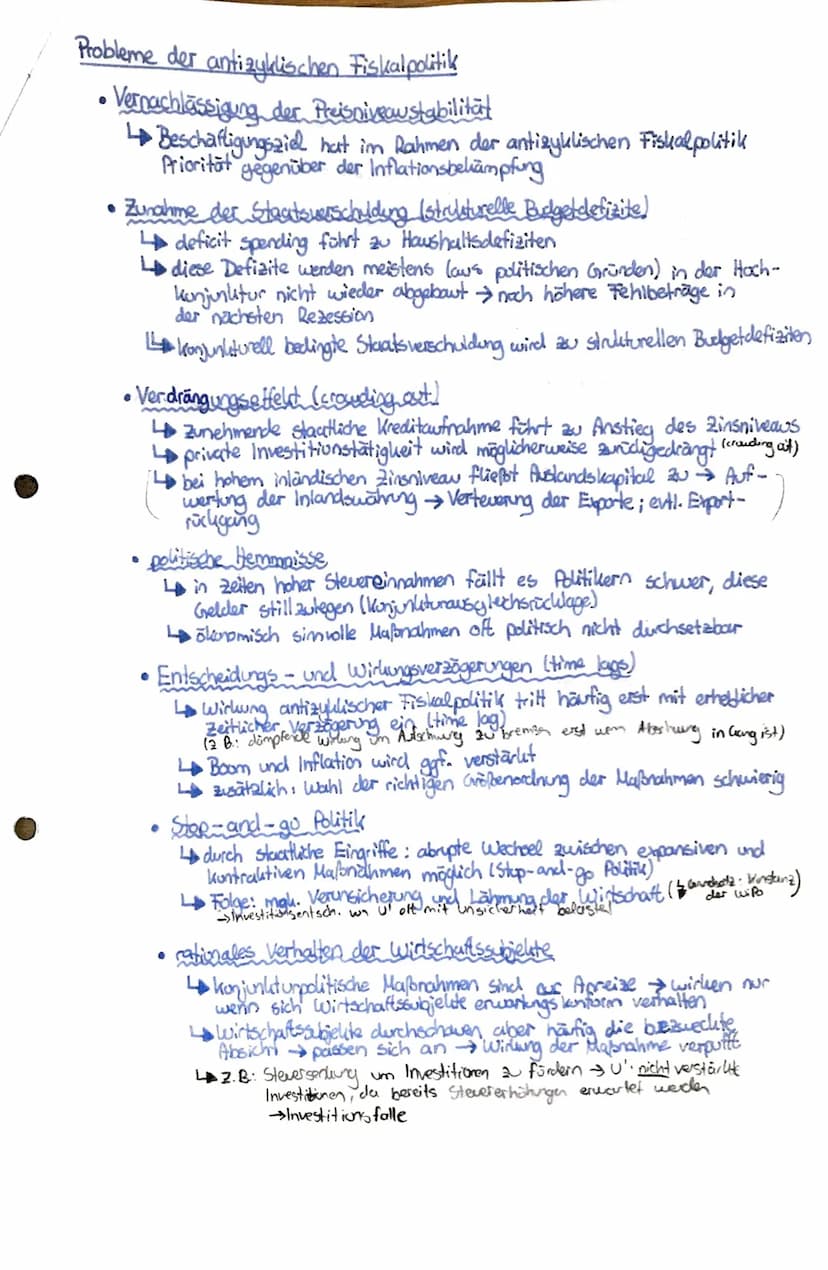 Probleme der antizyklischen Fiskalpolitik
• Vernachlässigung der Preisniveaustabilität
↳ Beschäftigungsziel hat im Rahmen der antizyklischen Fiskalpolitik
Priorität gegenüber der Inflationsbekämpfung
• Zunahme der Staatsverschuldung (strukturelle Budgetdefizite)
↳ deficit spending führt zu Haushaltsdefiziten
↳ diese Defizite werden meistens (aus politischen Gründen) in der Hoch-
konjunktur nicht wieder abgebaut → noch höhere Fehlbeträge in
der nächsten Rezession
↳ konjunkturell bedingte Staatsverschuldung wird zu strukturellen Budgetdefiziten
• Verdrängungseffekt (crowding out)
↳ zunehmende staatliche Kreditaufnahme führt zu Anstieg des Zinsniveaus
↳ private Investitionstätigkeit wird möglicherweise zurückgedrängt (crowding out)
↳ bei hohem inländischen Zinsniveau fließt Auslandskapital zu → Auf-
wertung der Inlandswährung → Verteuerung der Exporte; evtl. Export-
rückgang
• politische Hemmnisse
↳ in Zeiten hoher Steuereinnahmen fällt es Politikern schwer, diese
Gelder stillzulegen (Konjunkturausgleichsrücklage)
↳ ökonomisch sinnvolle Maßnahmen oft politisch nicht durchsetzbar
• Entscheidungs- und Wirkungsverzögerungen (time lags)
↳ Wirkung antizyklischer Fiskalpolitik tritt häufig erst mit erheblicher
zeitlicher Verzögerung ein (time lag)
(z.B.: dämpfende Wirkung um Aufschwung zu bremsen erst wenn Abschwung in Gang ist)
↳ Boom und Inflation wird ggf. verstärkt
↳ zusätzlich: Wahl der richtigen Größenordnung der Maßnahmen schwierig
• Stop-and-go Politik
↳ durch staatliche Eingriffe: abrupte Wechsel zwischen expansiven und
kontraktiven Maßnahmen möglich (Stop-and-go Politik)
↳ Folge: mgl. Verunsicherung und Lähmung der Wirtschaft (↳ Grundsatz: Konstanz
der WiPo)
→ Investitionsentsch. von U' oft mit Unsicherheit belastet
• rationales Verhalten der Wirtschaftssubjekte
↳ konjunkturpolitische Maßnahmen sind nur Anreize → wirken nur
wenn sich Wirtschaftssubjekte erwartungskonform verhalten
↳ Wirtschaftssubjekte durchschauen aber häufig die bezweckte
Absicht → passen sich an → Wirkung der Maßnahme verpufft
↳ z.B.: Steuersenkung um Investitionen zu fördern → U' nicht verstärkte
Investitionen, da bereits Steuererhöhungen erwartet werden
→ Investitionsfalle